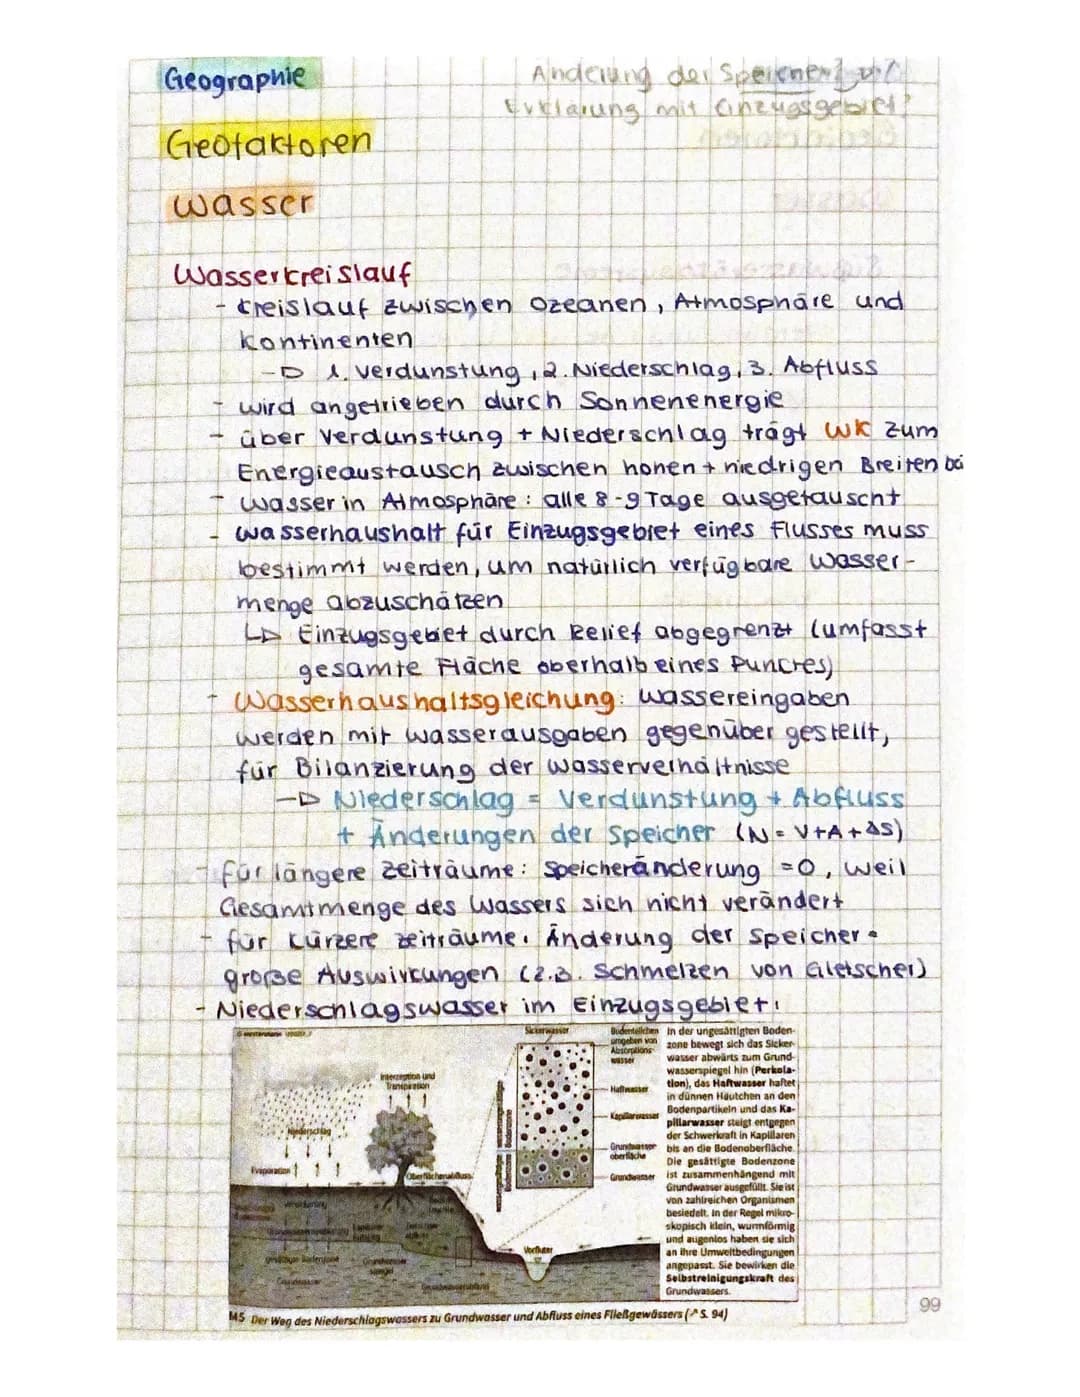 Geographie
Änderung der Speicher?
Erklärung mit Einzugsgebiet?
Geofaktoren
Wasser
Wasserkreislauf
- Kreislauf zwischen Ozeanen, Atmosphäre und
Kontinenten
→ 1. Verdunstung, 2. Niederschlag, 3. Abfluss
- wird angetrieben durch Sonnenenergie
- über Verdunstung + Niederschlag trägt WK zum
Energieaustausch zwischen hohen + niedrigen Breiten bei
- Wasser in Atmosphäre: alle 8-9 Tage ausgetauscht
- Wasserhaushalt für Einzugsgebiet eines Flusses muss
bestimmt werden, um natürlich verfügbare Wasser-
menge abzuschätzen
↳ Einzugsgebiet durch Relief abgegrenzt (umfasst
gesamte Fläche oberhalb eines Punktes)
- Wasserhaushaltsgleichung: Wassereingaben
werden mit Wasserausgaben gegenüber gestellt,
für Bilanzierung der Wasserverhältnisse
→ Niederschlag = Verdunstung + Abfluss
+ Änderungen der Speicher (N = V+A+ΔS)
- für längere Zeiträume: Speicheränderung =0, weil
Gesamtmenge des Wassers sich nicht verändert
- für kürzere Zeiträume: Änderung der Speicher =
große Auswirkungen (z.B. Schmelzen von Gletscher)
- Niederschlagswasser im Einzugsgebiet:
Sickerwasser
Bodenteilchen
umgeben von
Absorptions-
wasser
Haftwasser
Kapillarwasser
Grundwasser-
oberfläche
Grundwasser
Interzeption und
Transpiration
Niederschlag
Evaporation
Oberflächenabfluss
Vorfluter
gesättigte Bodenzone
Grundwasser-
spiegel
Grundwasser
Grundwasserabfluss
In der ungesättigten Boden-
zone bewegt sich das Sicker-
wasser abwärts zum Grund-
wasserspiegel hin (Perkola-
tion), das Haftwasser haftet
in dünnen Häutchen an den
Bodenpartikeln und das Ka-
pillarwasser steigt entgegen
der Schwerkraft in Kapillaren
bis an die Bodenoberfläche.
Die gesättigte Bodenzone
ist zusammenhängend mit
Grundwasser ausgefüllt. Sie ist
von zahlreichen Organismen
besiedelt. In der Regel mikro-
skopisch klein, wurmförmig
und augenlos haben sie sich
an ihre Umweltbedingungen
angepasst. Sie bewirken die
Selbstreinigungskraft des
Grundwassers.
M5 Der Weg des Niederschlagswassers zu Grundwasser und Abfluss eines Fließgewässers (↗ S. 94)
99